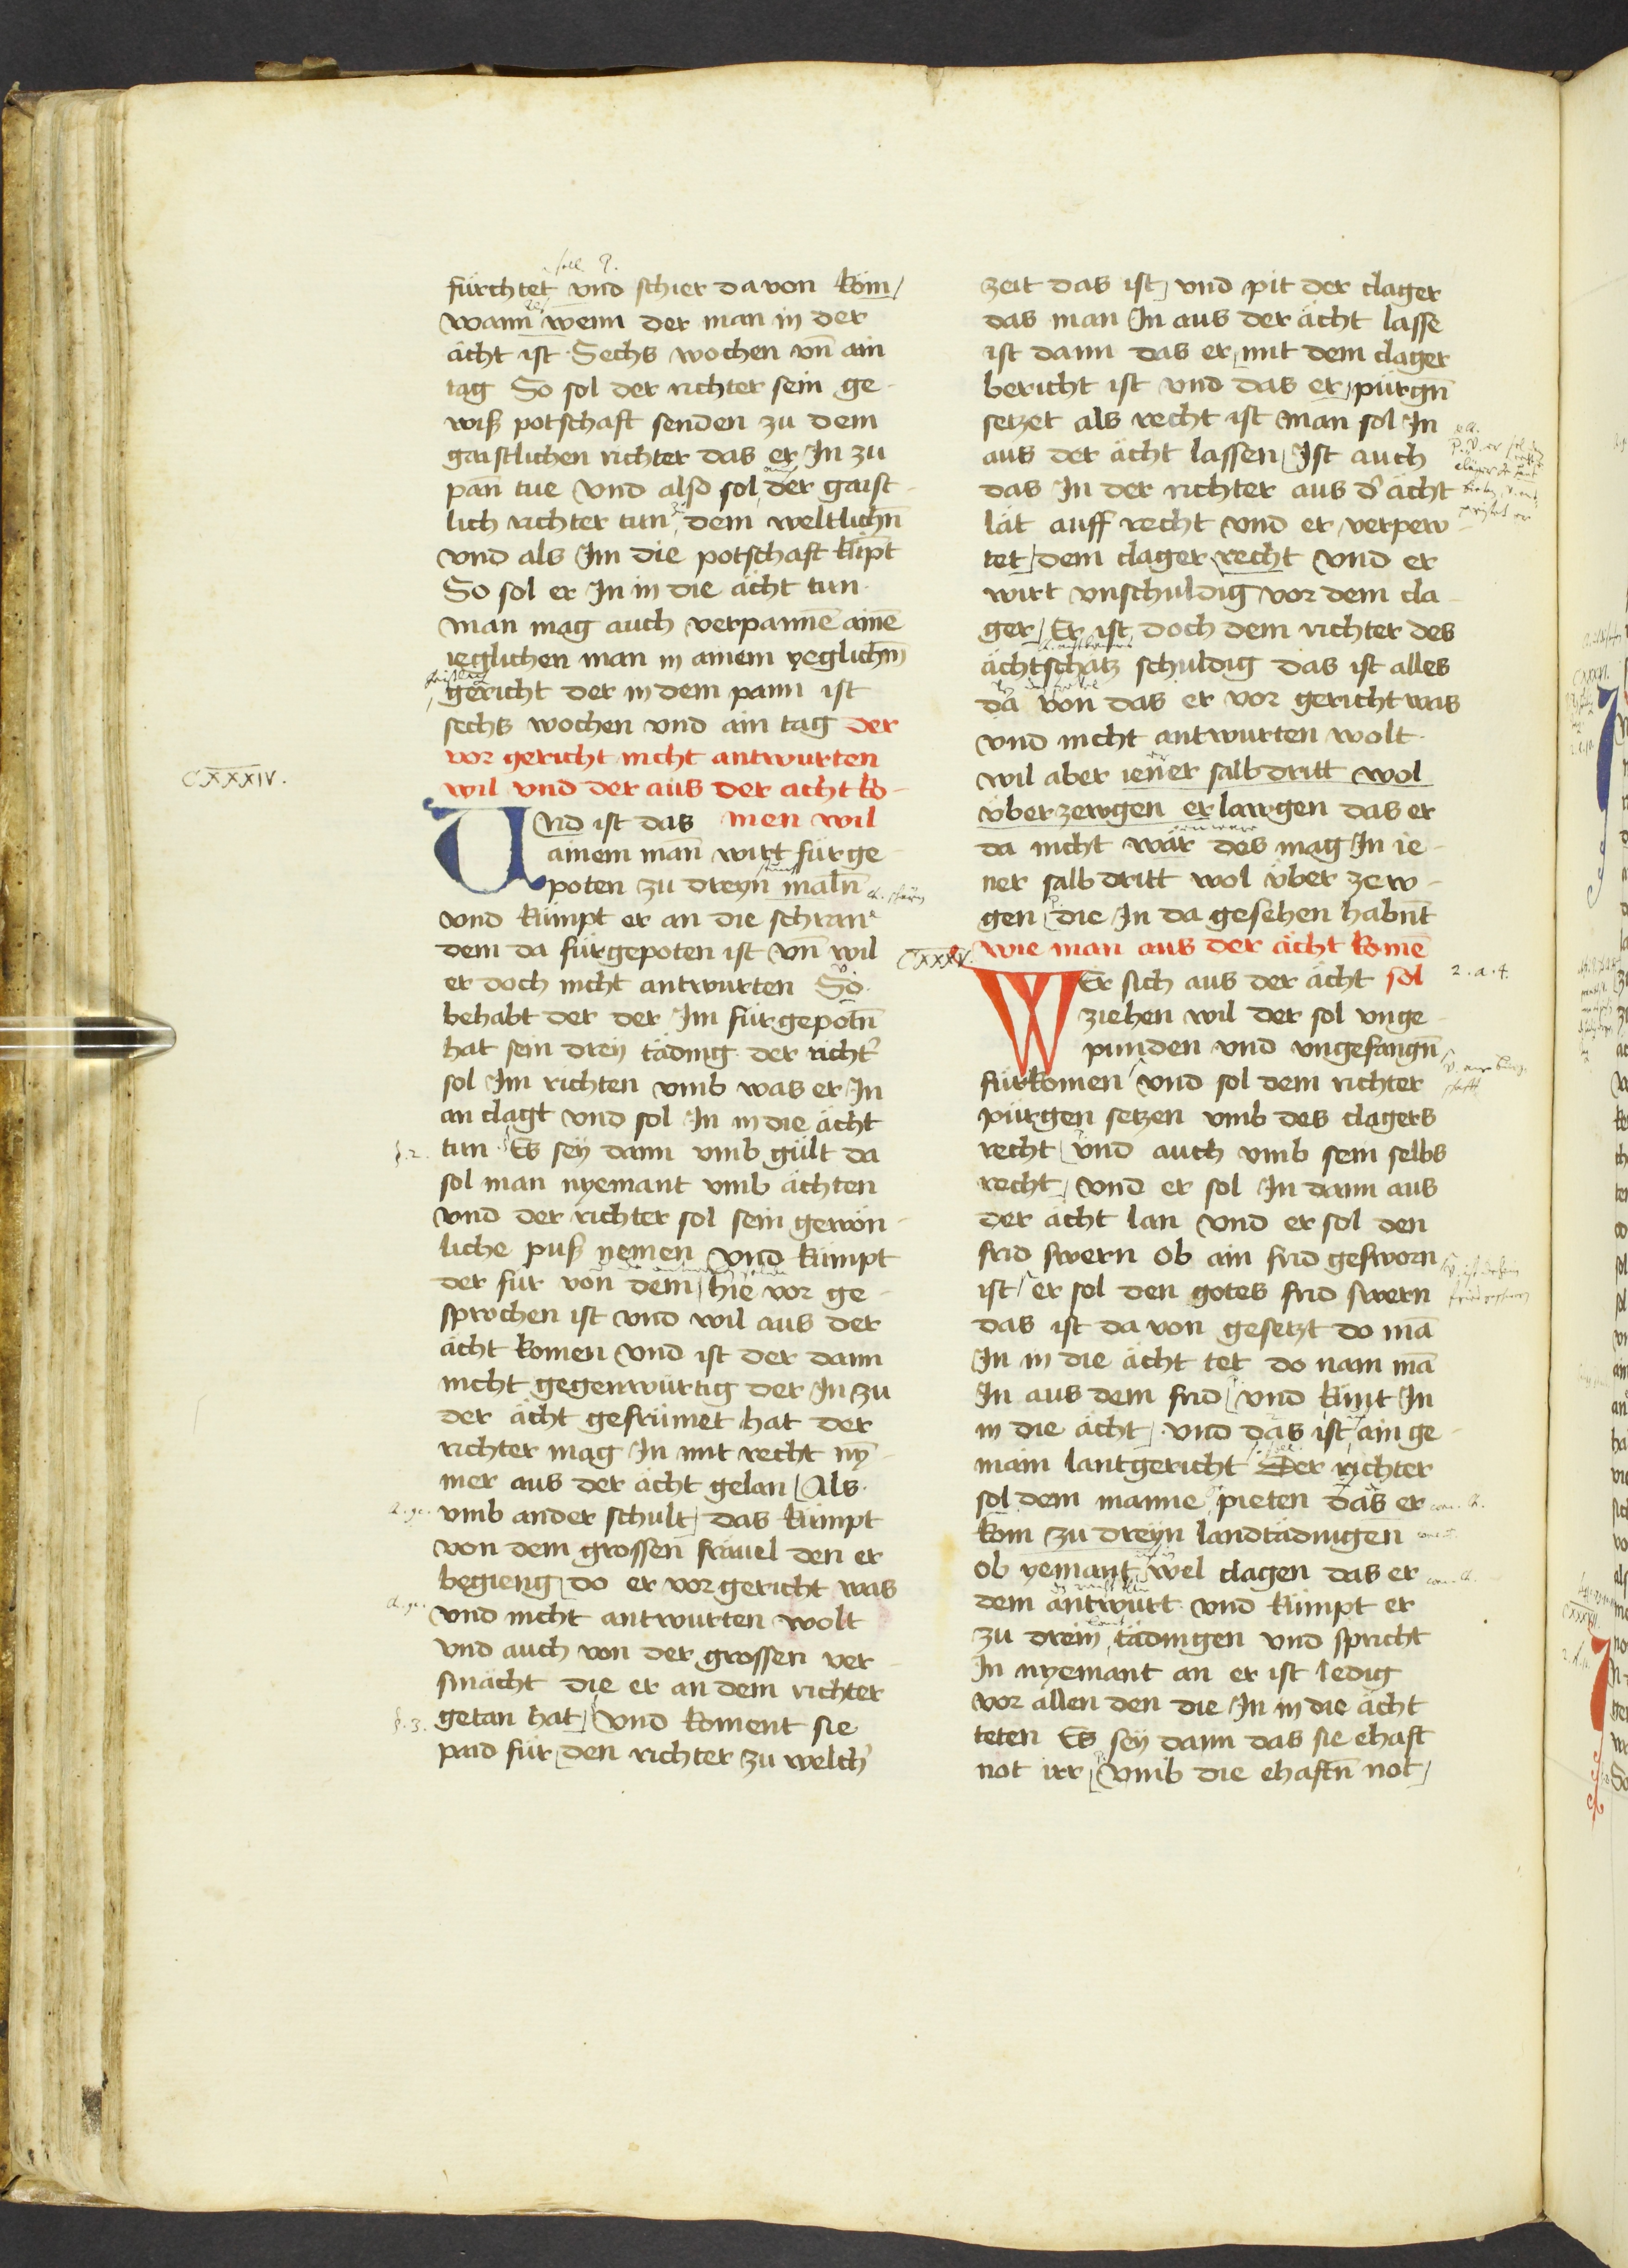 fürchtet vnd schier dauon köm
wann wenn der man in der
ächt ist Sechs wochen vn̄ ain
tag So sol der richter sein ge-
wiß potschaft senden zu dem
gaistlichen richter das er In zu
pan̄ tue Vnd also sol der gaist-
lich richter tun dem weltlichn̄
vnd als Im die potschaft kūpt
So sol er In in die ächt tun·
man mag auch verpannē ainē
ieglichen man in ainem yeglichm̄
gericht der in dem pann ist
sechs wochen vnd ain tag der
vor gericht nicht antwurten
CXXXIV.
wil vnd der aus der acht ko-
Vnd ist das men wil
ainem man̄ wirt für ge-
poten zu dreyn maln̄
vnd kümpt er an die schran
dem da fürgepoten ist vn̄ wil
er doch nicht antwurten So
behabt der der Im fürgepotn̄
hat sein drey täding der richt'
sol Im richten vmb was er In
an clagt vnd sol In in die ächt
§.2. tun· Es sey dann vmb gült da
sol man nyemant vmb ächten
vnd der richter sol sein gewön-
liche puß nemen Vnd kümpt
der für von dem hie vor ge-
sprochen ist vnd wil aus der
ächt komen Vnd ist der dann
nicht gegenwürtig der In zu
der ächt gefrümet hat der
richter mag In mit recht ny-
mer aus der ächt gelan Als·
vmb ander schult das kümpt
von dem grossen fräuel den er
begieng do er vor gericht was
vnd nicht antwurten wolt
vnd auch von der grossen ver-
smächt die er an dem richter
§.3. getan hat Vnd koment sie
paid für den richter zu welch'
zeit das ist vnd pit der clager
das man In aus der ächt lasse
ist dann das er mit dem clager
bericht ist vnd das er pürgn̄
setzet als recht ist man sol In
aus der ächt lassen Ist auch
das In der richter aus d' ächt
lät auff recht vnd er verpew-
tet dem clager recht Vnd er
wirt vnschuldig vor dem cla-
ger Er ist doch dem richter des
ächtschatz schuldig das ist alles
da von das er vor gericht was
vnd nicht antwurten wolt·
wil aber iener salbdritt wol
vberzewgen erlawgen das er
da nicht wär des mag In ie-
ner salbdritt wol vber zew-
gen die In da gesehen habnt̄
CXXXV. wie man aus der ächt komē
Wer sich aus der ächt sol 2.a.4.
ziehen wil der sol vnge-
punden vnd vngefangn̄
fürkomen vnd sol dem richter
pürgen setzen vmb des clagers
recht vnd auch vmb sein selbs
recht Vnd er sol In dann aus
der ächt lan Vnd er sol den
frid swern ob ain frid gesworn
ist er sol den gotes frid swern
das ist da von gesetzt do mā
In in die ächt tet do nam mā
In aus dem frid vnd künt In
in die ächt vnd das ist ain ge-
main lantgericht Der richter
sol dem manne pieten das er
kom zu dreyn landtädingen
ob yemant wel clagen das er
dem antwurt vnd kümpt er
zu drein tädingen vnd spricht
In nyemant an er ist ledig
vor allen den die In in die ächt
teten Es sey dann das sie ehaft
not irr vmb die ehaftn̄ not